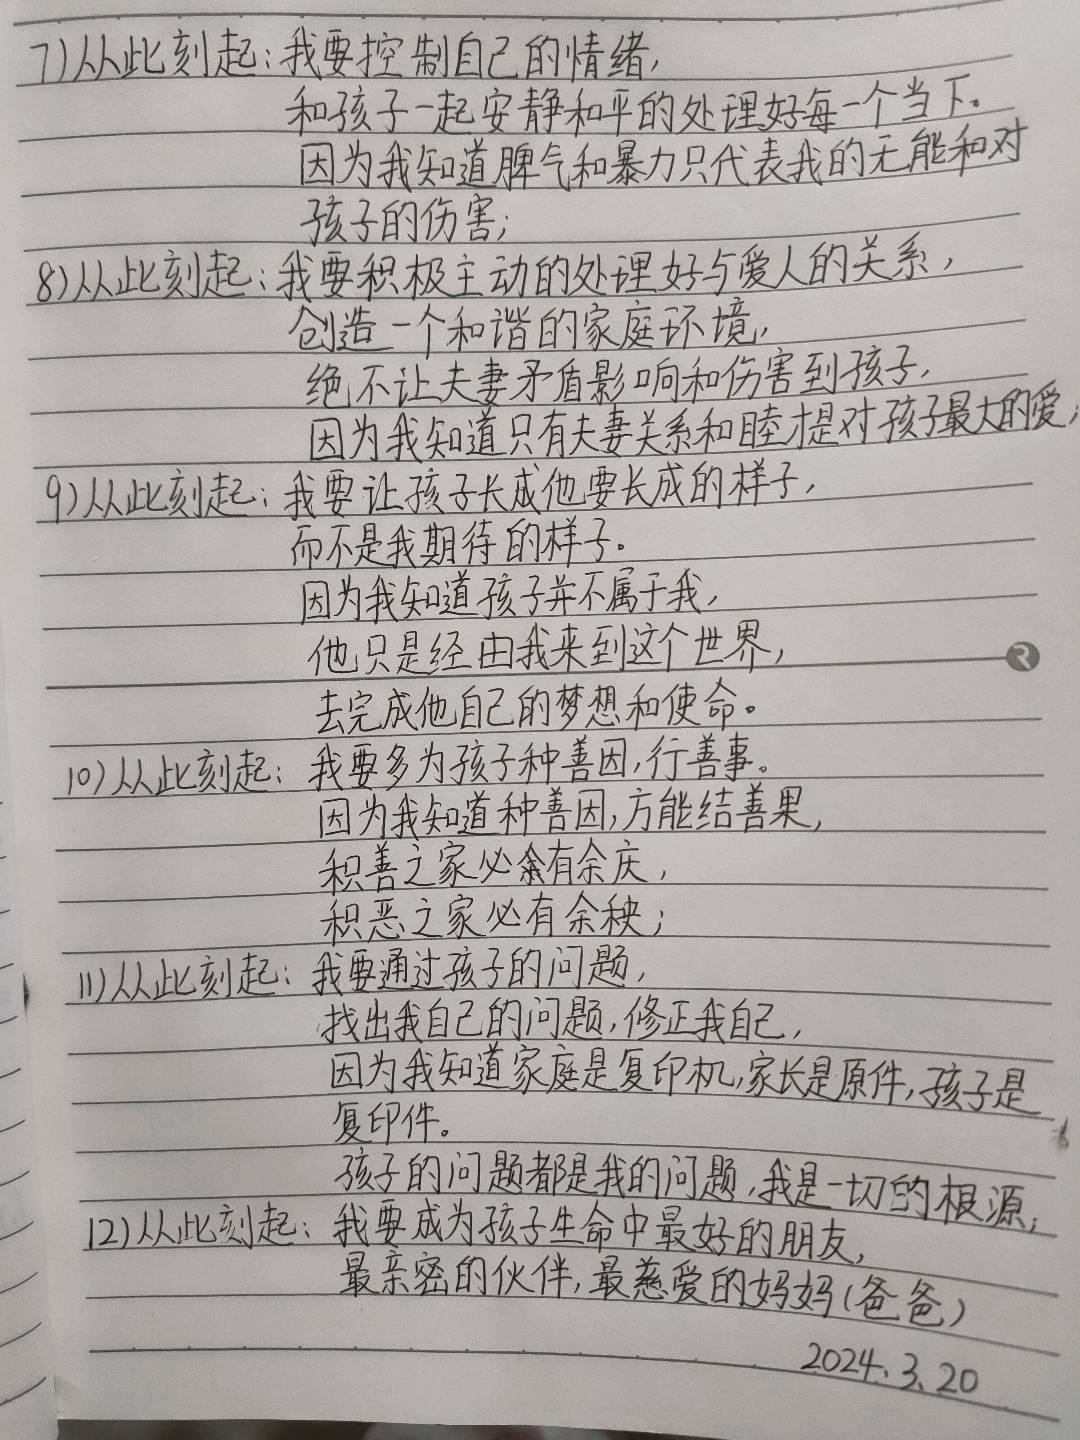 7)从此刻起:我要控制自己的情绪,
和孩子一起安静和平的处理好每一个当下。
因为我知道脾气和暴力只代表我的无能和对
孩子的伤害;
8)从此刻起:我要积极主动的处理好与爱人的关系,
创造一个和谐的家庭环境,
绝不让夫妻矛盾影响和伤害到孩子,
因为我知道只有夫妻关系和睦才是对孩子最大的爱;
9)从此刻起:我要让孩子长成他要长成的样子,
而不是我期待的样子。
因为我知道孩子并不属于我,
他只是经由我来到这个世界,
去完成他自己的梦想和使命。
10)从此刻起:我要多为孩子种善因,行善事。
因为我知道种善因,方能结善果,
积善之家必有余庆,
积恶之家必有余秧;
11)从此刻起:我要通过孩子的问题,
找出我自己的问题,修正我自己,
因为我知道家庭是复印机,家长是原件,孩子是
复印件。
孩子的问题都是我的问题,我是一切的根源;
12)从此刻起:我要成为孩子生命中最好的朋友,
最亲密的伙伴,最慈爱的妈妈(爸爸)
2024.3.20